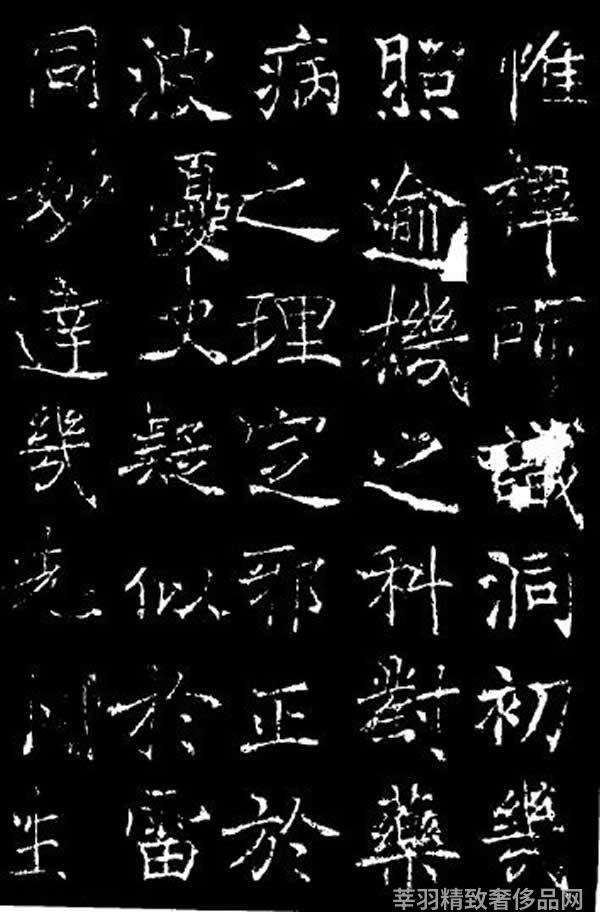 惟禪師識洞初幾
照逾機之科對藥
病之理定邪正於
波疑似於雷
同妙達幾先生
莘羽精致奢侈品网